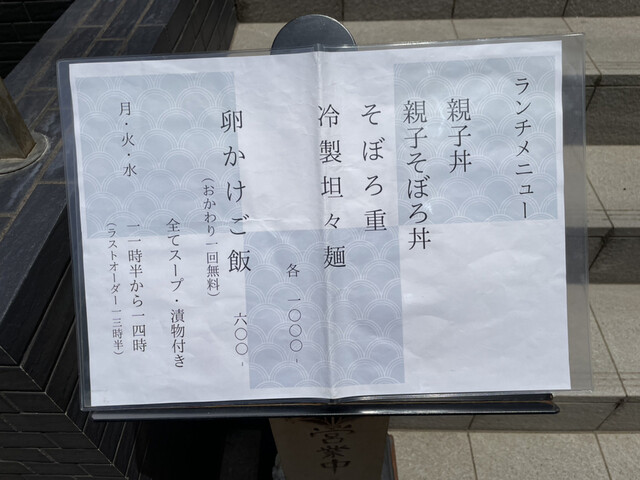 ランチメニュー
親子丼
親子そぼろ丼
そぼろ重
冷製坦々麺
各 一〇〇〇-
卵かけご飯
(おかわり一回無料)
六〇〇-
全てスープ・漬物付き
月・火・水
一一時半から一四時
(ラストオーダー一三時半)
営業中